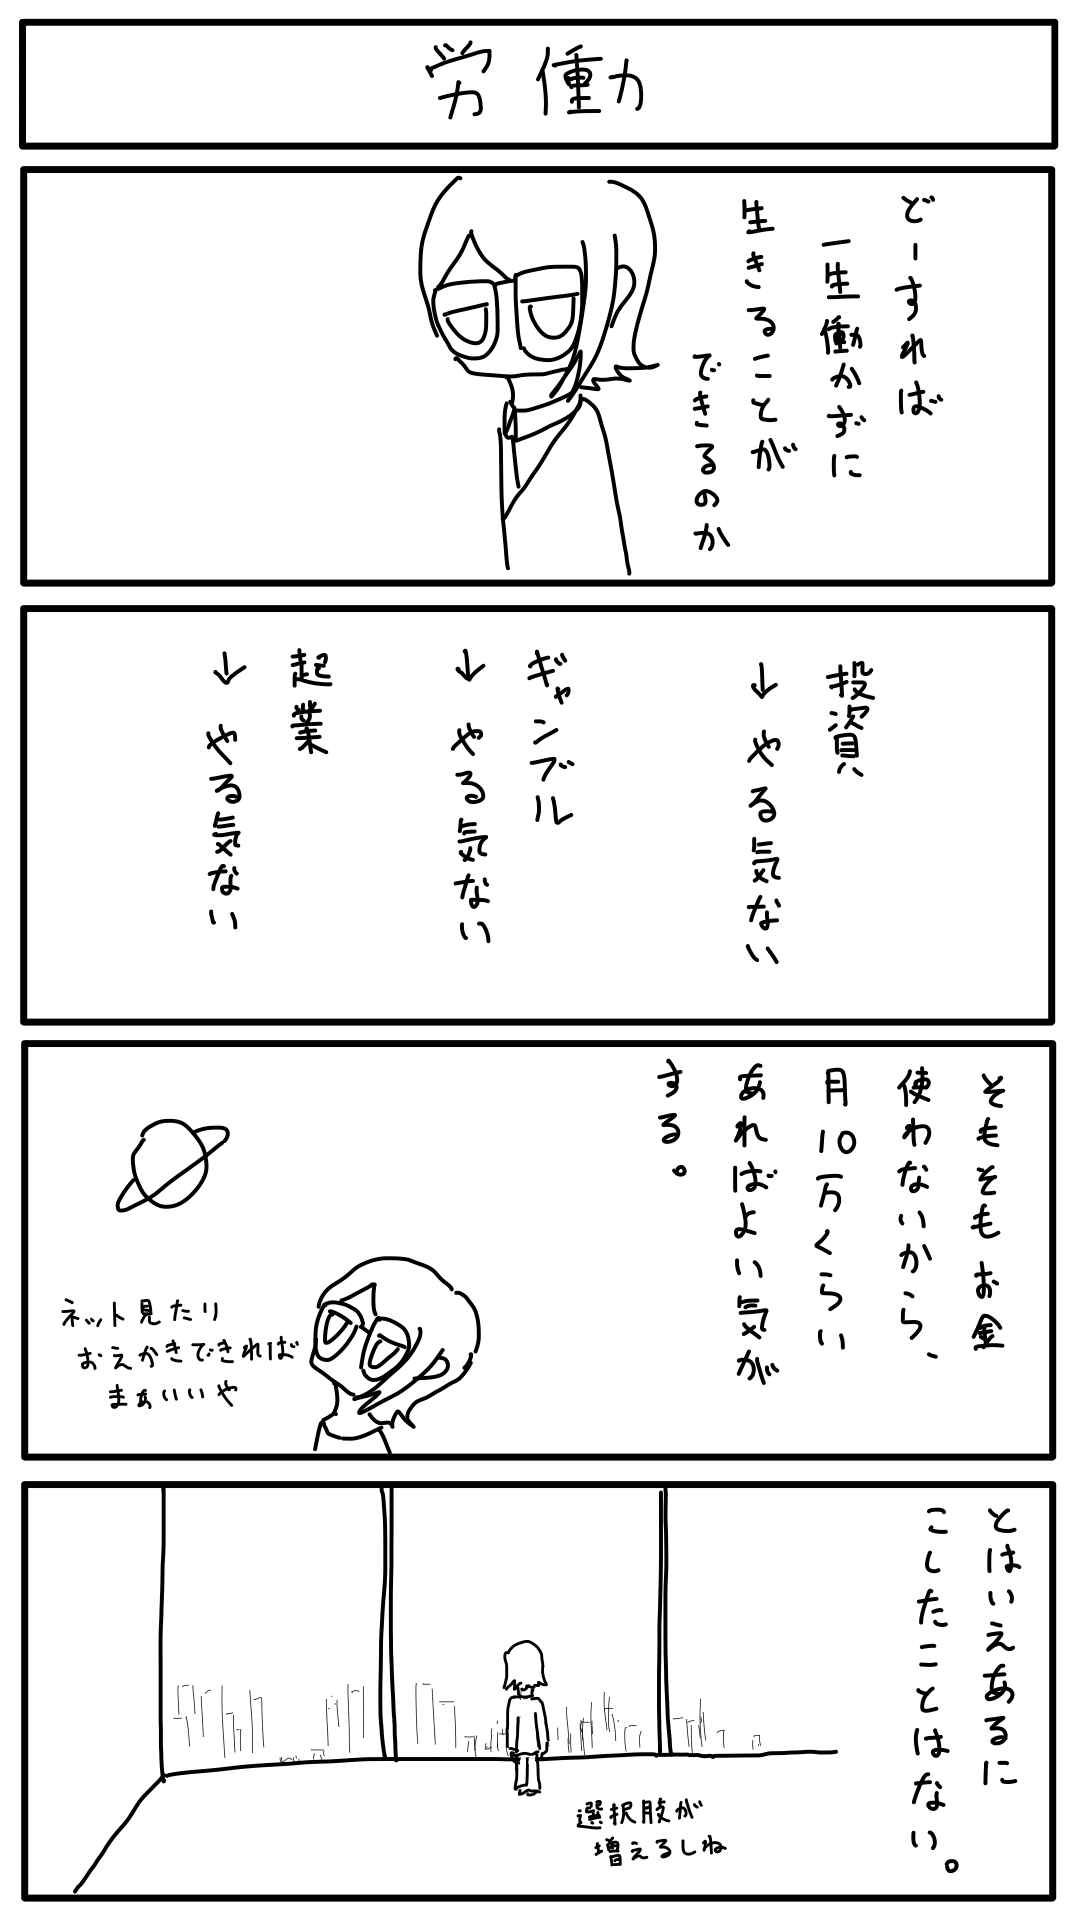 労働
どーすれば
一生働かずに
生きることが
できるのか
投資
↓ やる気ない
ギャンブル
↓ やる気ない
起業
↓ やる気ない
そもそもお金
使わないから、
月10万くらい
あればよい気が
する。
ネット見たり
おえかきできれば
まぁいいや
とはいえあるに
こしたことはない。
選択肢が
増えるしね